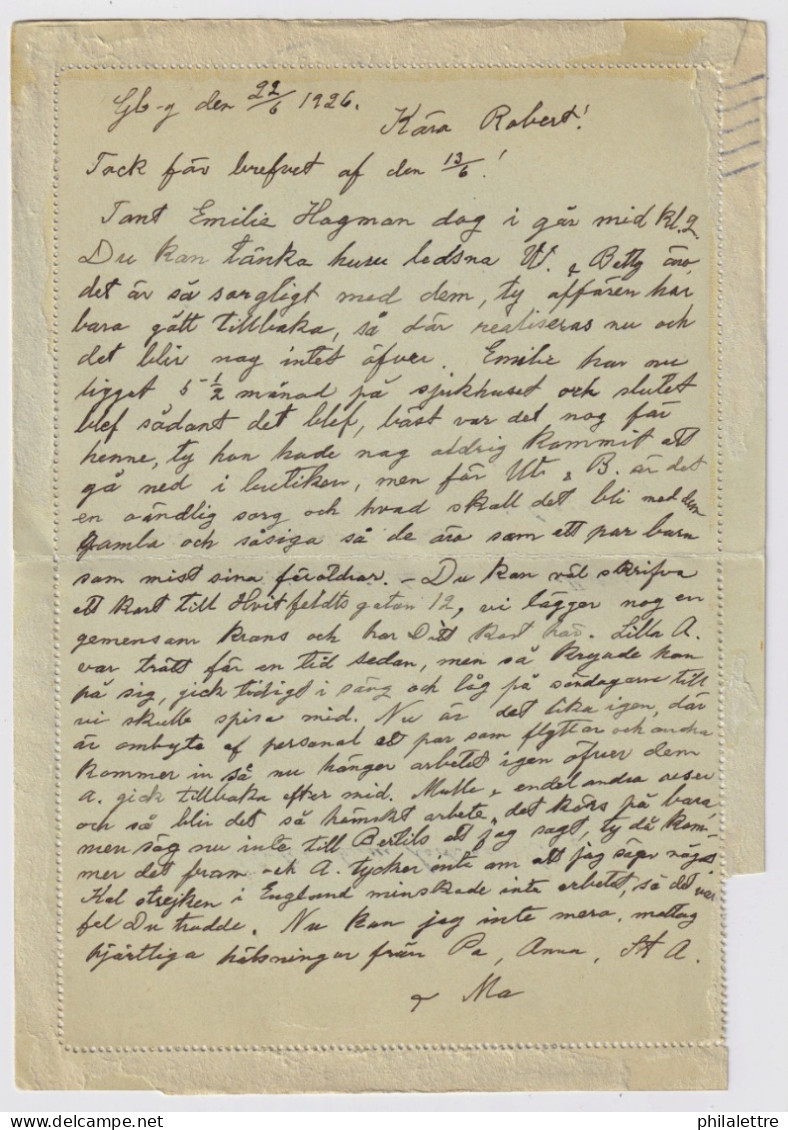 Gb-g den 22/6 1926.
Kära Robert!
Tack för brefvet af den 13/6!
Tant Emilie Hagman dog i går mid kl. 2.
Du kan tänka huru ledsna W. & Betty äro,
det är så sorgligt med dem, ty affären har
bara gått tillbaka, så där realiseras nu och
det blir nog intet öfver. Emilie har nu
ligget 5-1/2 månad på sjukhuset och slutet
blef sådant det blef, bäst var det nog för
henne, ty hon hade nog aldrig kommit att
gå ned i butiken, men för W. & B. är det
en oändlig sorg och hvad skall det bli med dem
gamla och såsiga så de äro som ett par barn
som mist sina föräldrar. – Du kan väl skrifva
ett kort till Hvitfeldts gatan 12, vi lägger nog en
gemensam krans och har Ditt kort här. Lilla A.
var trött för en tid sedan, men så knogade hon
på sig, gick tidigt i säng och låg på söndagarne till
vi skulle spisa mid. Nu är det lika igen, där
är ombyte af personal ett par som flyttar och andra
kommer in så nu hänger arbetet igen öfver dem
A. gick tillbaka efter mid. Mulle & endel andra reser
och så blir det så hemskt arbete, det körs på bara,
men säg nu inte till Bertils att jag sagt, ty då kom-
mer det fram och A. tycker inte om att jag säger något
Kol strejken i England minskade inte arbetet, så det var
fel Du trodde. Nu kan jag inte mera, mottag
hjärtliga hälsningar från Pa, Anna, St A.
& Ma
philalettre